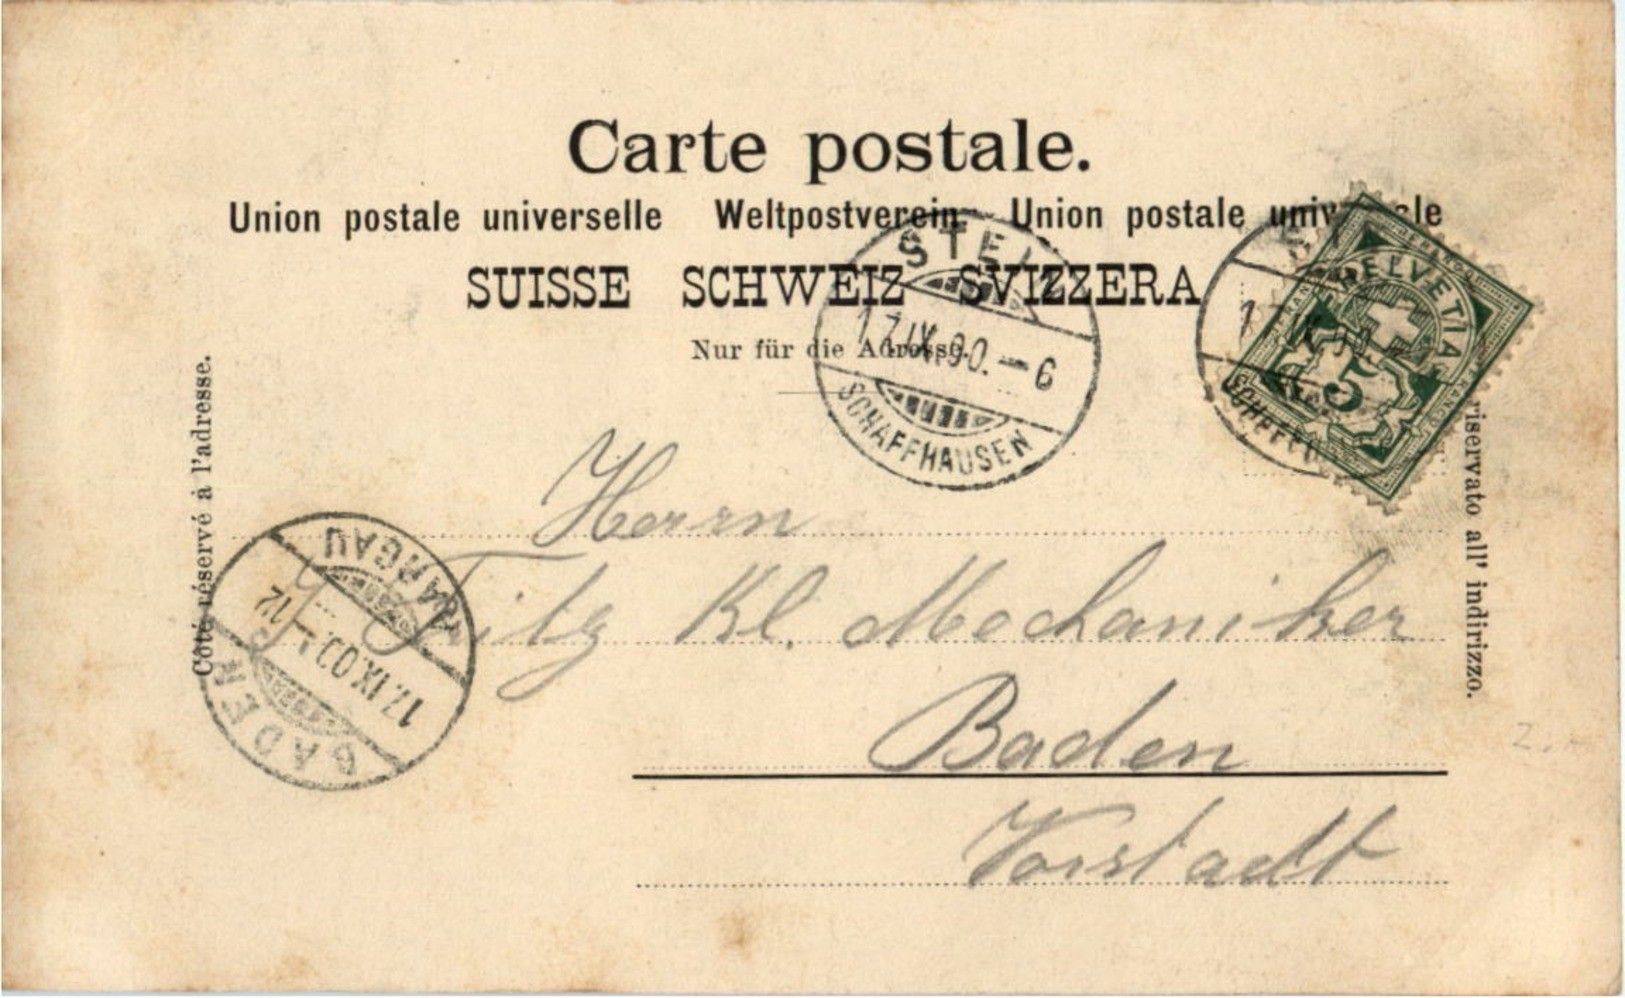 Carte postale.
Union postale universelle Weltpostverein. Union postale universale
SUISSE SCHWEIZ SVIZZERA
Nur für die Adresse.
Côté réservé à l'adresse.
riservato all' indirizzo.
STEIN
17.IX.00.–6
SCHAFFHAUSEN
HELVETIA
5
Herrn
Kl. Mechaniker
Baden
Vorstadt
AARGAU
17.IX.00. 12
BADEN